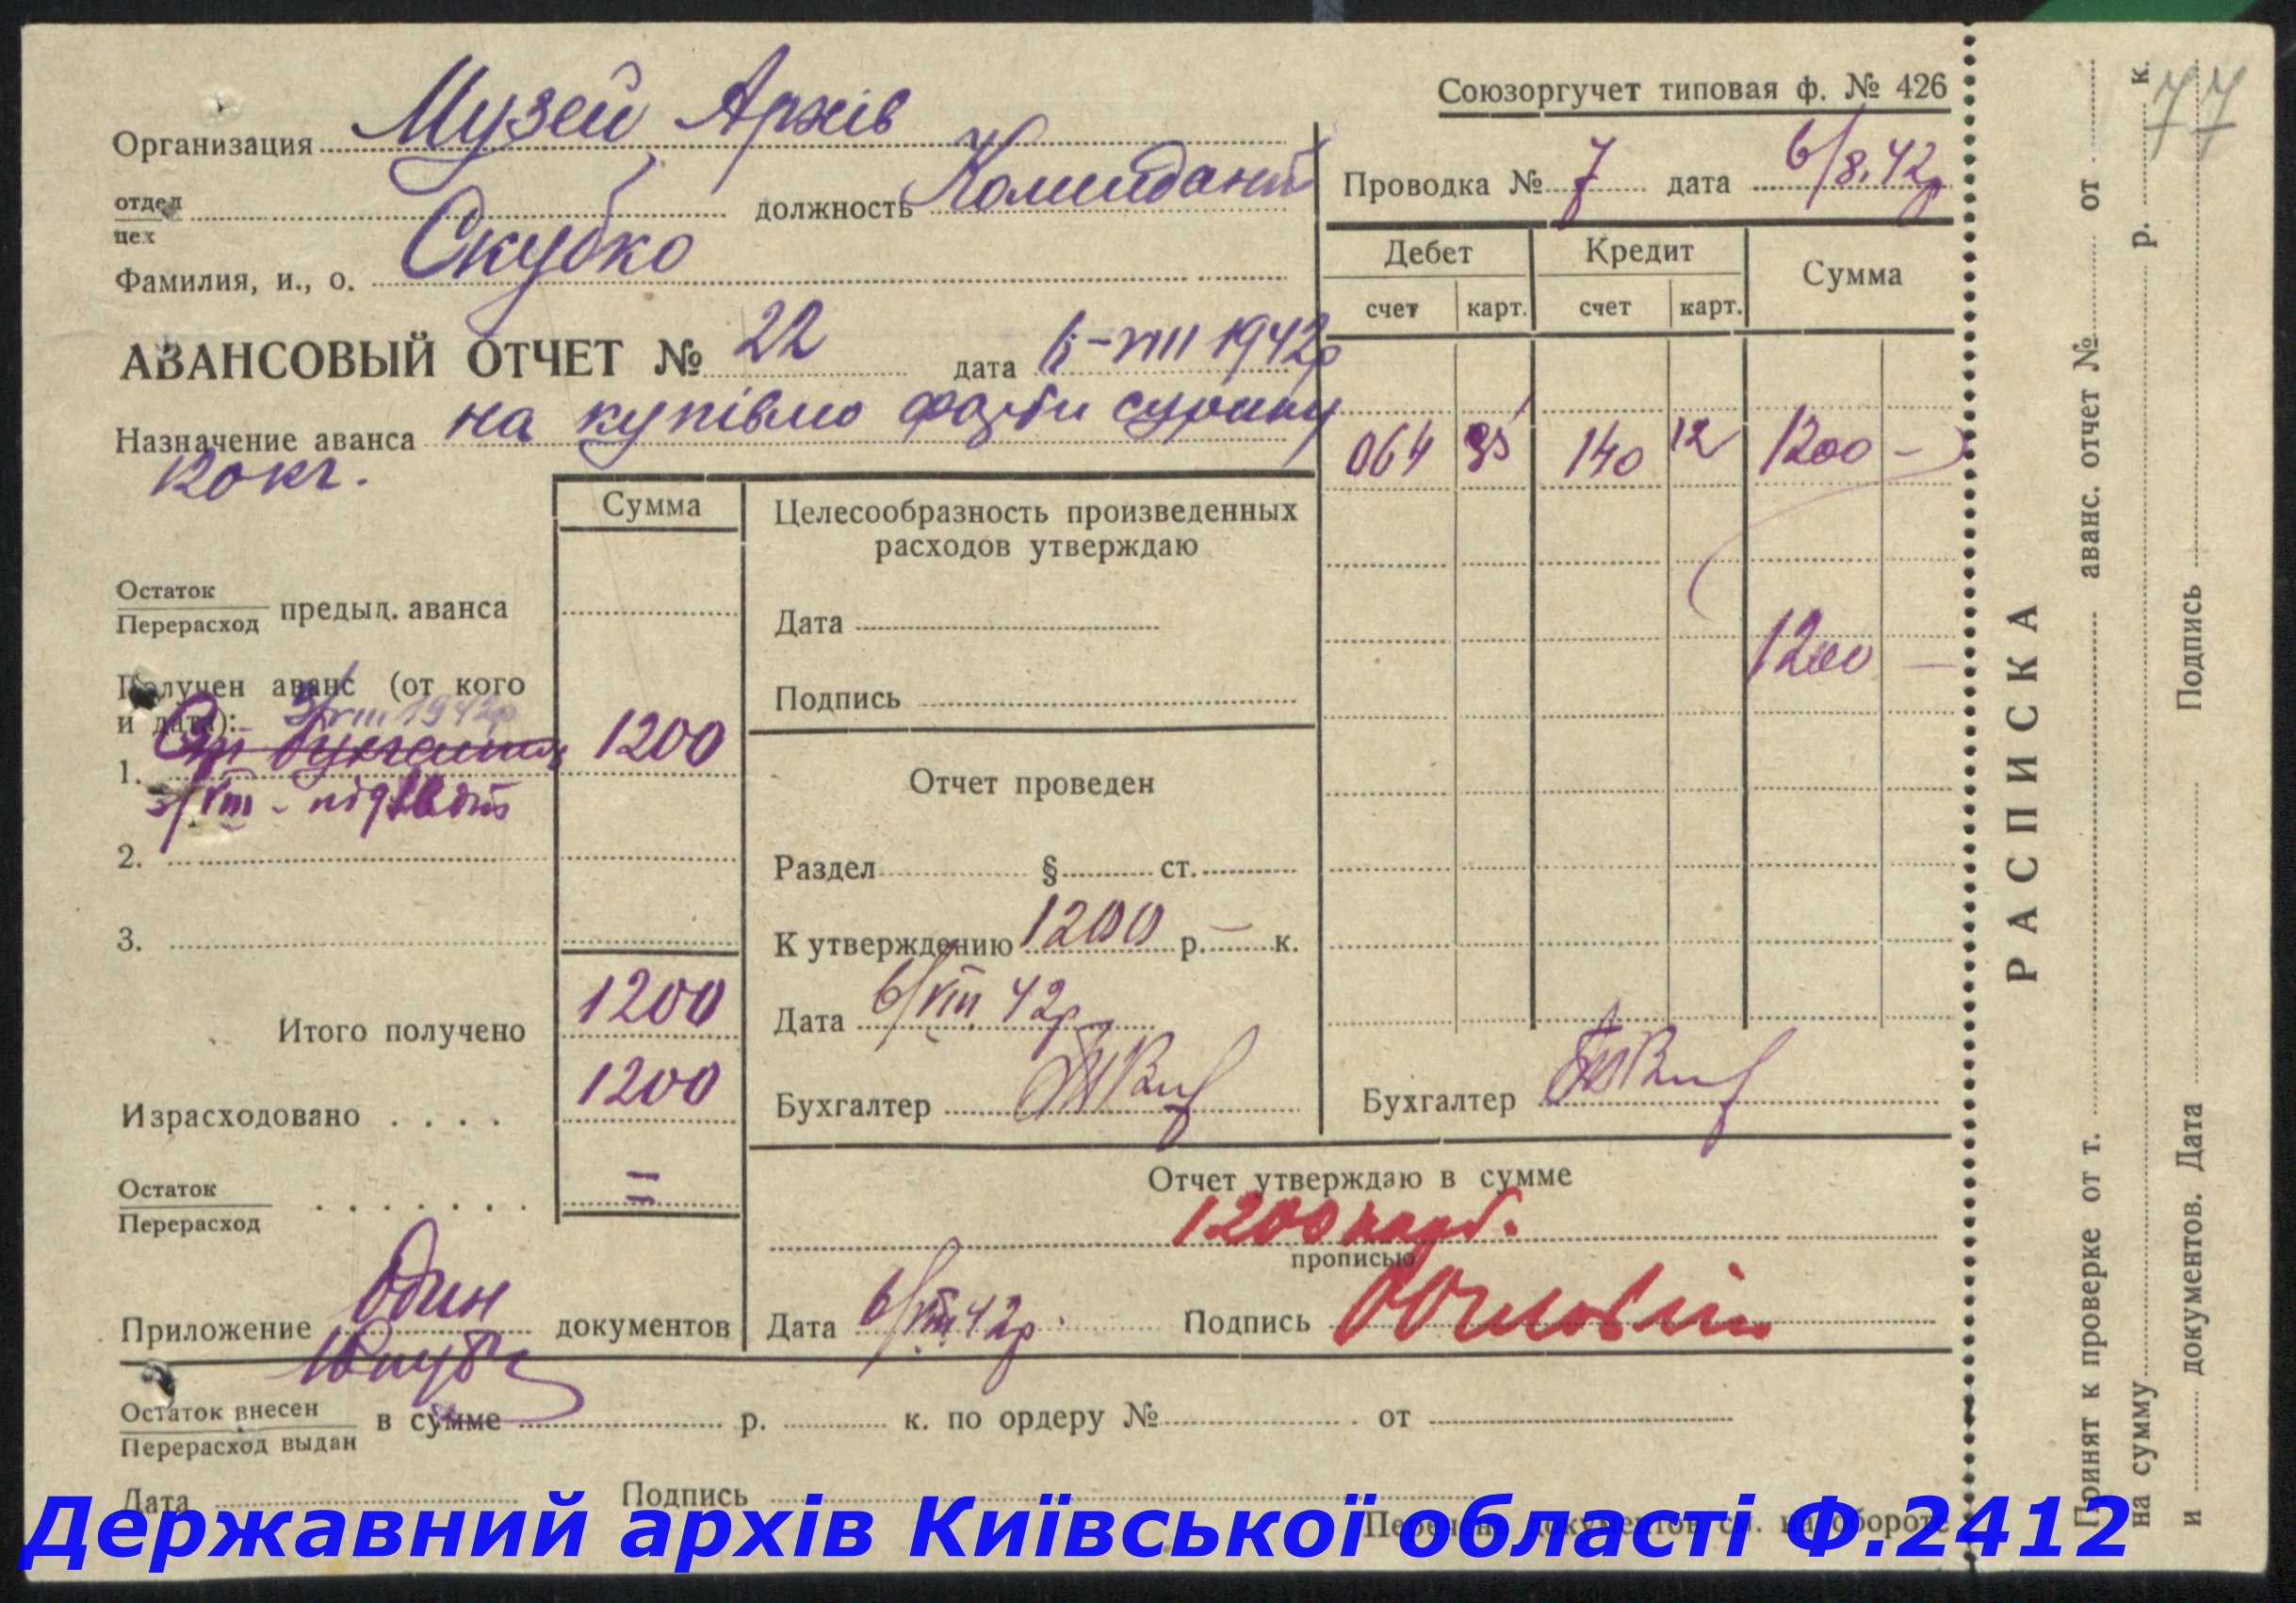 Союзоргучет типовая ф. № 426
Организация Музей Архів
отдел
цех
должность Комендант
Фамилия, и., о. Скубко
Проводка № 7 дата 6/8.42р
Дебет Кредит Сумма
счет карт. счет карт.
АВАНСОВЫЙ ОТЧЕТ № 22 дата 6-VIII 1942р
Назначение аванса на купівлю фарби сурику
064 95 140 12 1200 -
1200 —
Сумма
Целесообразность произведенных
расходов утверждаю
Остаток
Перерасход предыд. аванса
Дата
Подпись
Получен аванс (от кого
и дата): 3/VIII 1942р
1. 1200
3/VIII -
2.
3.
Отчет проведен
Раздел § ст.
К утверждению 1200 р. — к.
Итого получено 1200
Дата 6/VIII 42р
Израсходовано . . . . 1200
Бухгалтер
Бухгалтер
Остаток
Перерасход . . . . . . . =
Отчет утверждаю в сумме
1200 карб.
прописью
Приложение Один документов
Дата 6/VIII 42р. Подпись
Остаток внесен
Перерасход выдан в сумме р. к. по ордеру № от
Дата Подпись
Перечень документов см. на обороте
РАСПИСКА
Принят к проверке от т. аванс. отчет № от
на сумму р. к.
и документов. Дата Подпись
77
Державний архів Київської області Ф.2412